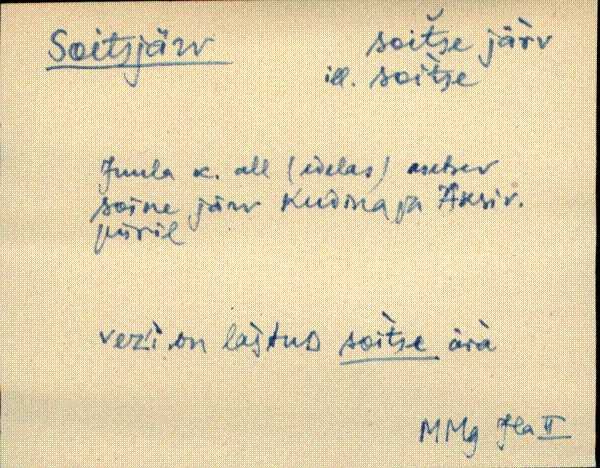 Soitsjärv soitše järv
ill. soitse
Juula k. all (edelas) asetsev
soine järv Kudina ja Äksi v.
piiril
vez'i on lastud soitse ärä
MMg